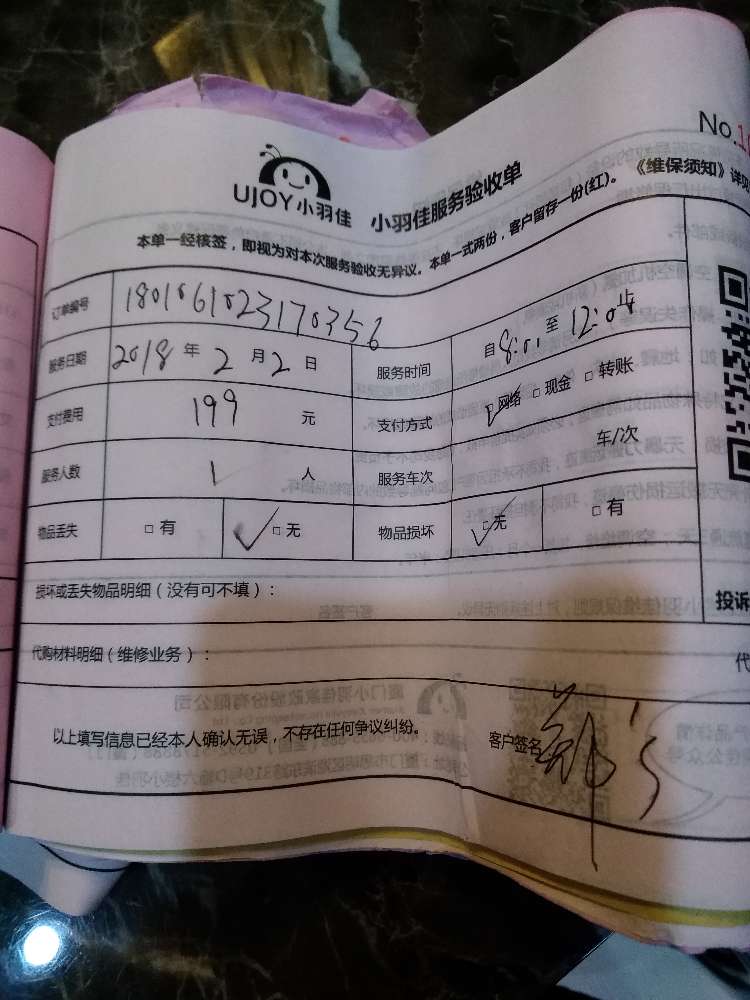 No.1
UJOY小羽佳 小羽佳服务验收单
本单一经核签，即视为对本次服务验收无异议。本单一式两份，客户留存一份(红)。《维保须知》详见
订单编号 1801061023170356
服务日期 2018 年 2 月 2 日 服务时间 自 8:01 至 12:04
支付费用 199 元 支付方式 □网络 □现金 □转账
服务人数 1 人 服务车次 车/次
物品丢失 □有 □无 物品损坏 □无 □有
损坏或丢失物品明细（没有可不填）： 投诉
代购材料明细（维修业务）： 代
以上填写信息已经本人确认无误，不存在任何争议纠纷。 客户签名 郑